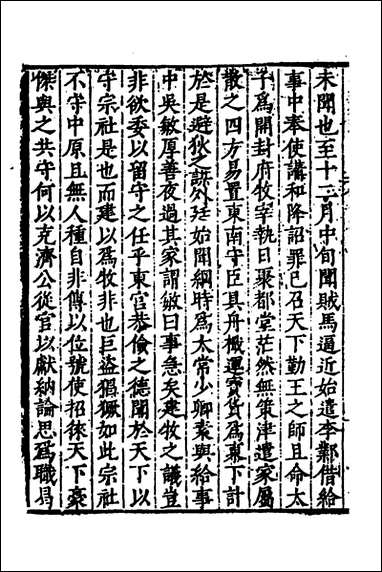 未聞也至十二月中旬聞賊馬逼近始遣李鄴借給
事中奉使講和降詔罪己召天下勤王之師且命太
子爲開封府牧宰執日聚都堂茫然無策津遣家屬
散之四方易置東南守臣具舟楫運寳貨爲東下計
於是避狄之謀外廷始聞綱時爲太常少卿素與給事
中吳敏厚善夜過其家謂敏曰事急矣建牧之議豈
非欲委以留守之任乎東宮恭儉之德聞於天下以
守宗社是也而建以爲牧非也巨盗猖獗如此宗社
不守中原且無人種自非傳以位號使招徠天下豪
傑與之共守何以克濟公從官以獻納論思爲職曷